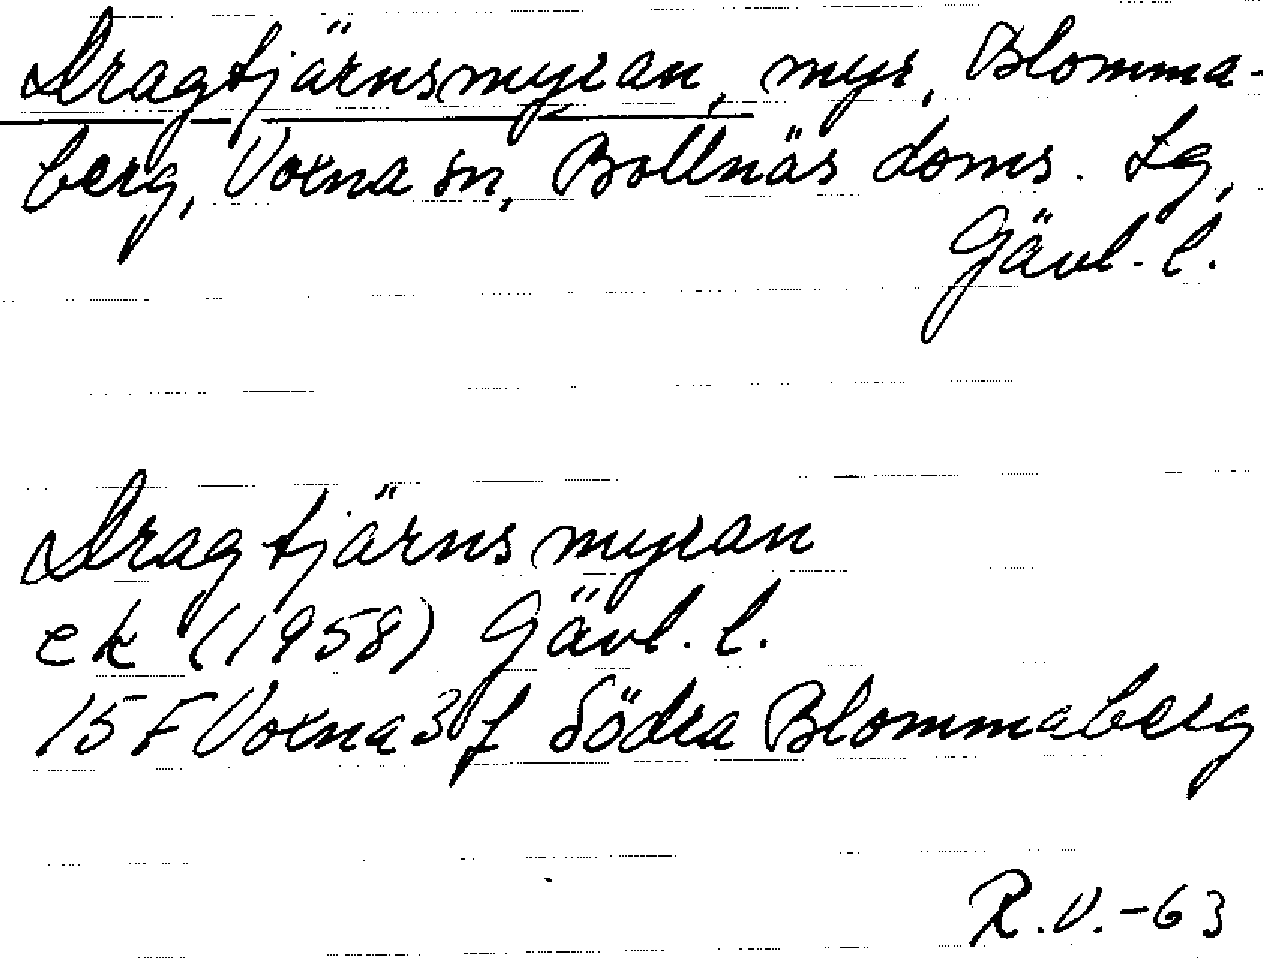 Dragtjärnsmyran, myr, Blomma-
berg, Voxna sn, Bollnäs doms. Lg,
Gävl. l.
Dragtjärnsmyran
ek (1958) Gävl. l.
15 F Voxna 3 f Södra Blommaberg
R.V.-63